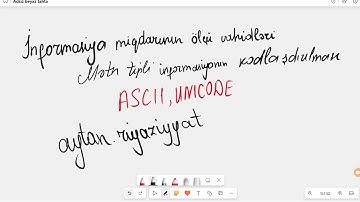 Adsız beyaz tahta
İnformasiya miqdarının ölçü vahidləri
Mətn tipli informasiyanın kodlaşdırılması
ASCII, UNICODE
aytan.riyaziyyat